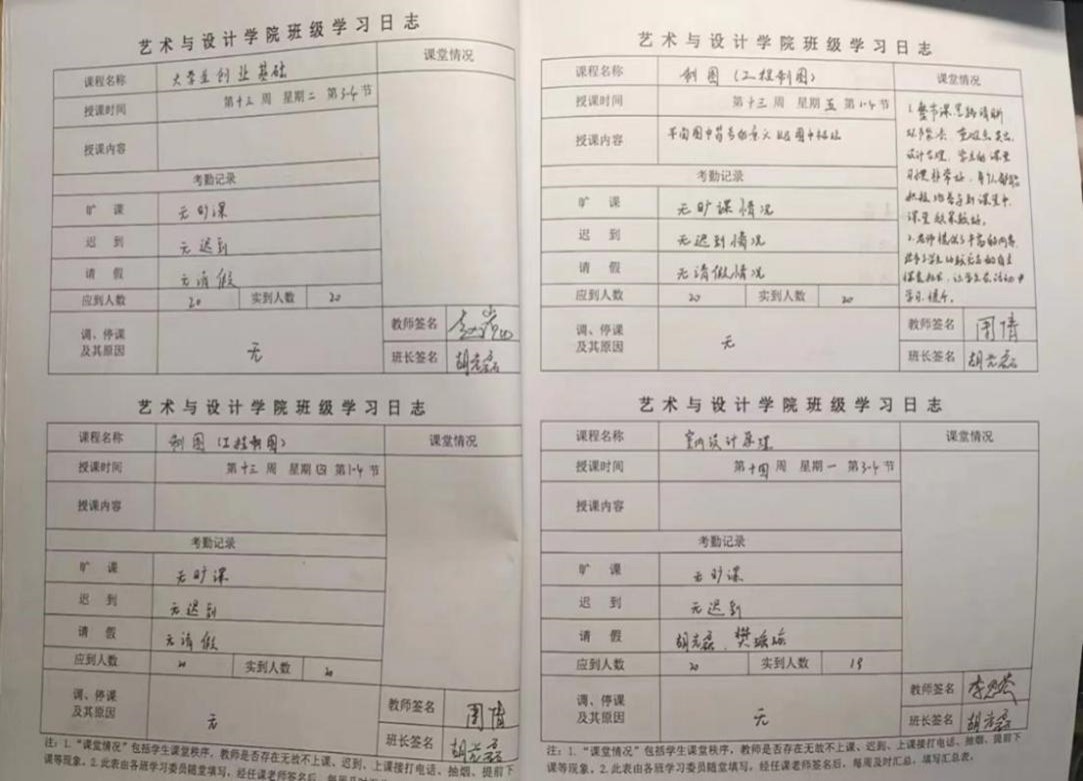 艺术与设计学院班级学习日志
课程名称 大学生创业基础 课堂情况
授课时间 第十三周 星期二 第3-4节
授课内容
考勤记录
旷 课 无旷课
迟 到 无迟到
请 假 无请假
应到人数 20 实到人数 20
调、停课
及其原因 无
教师签名
班长签名
艺术与设计学院班级学习日志
课程名称 制图(工程制图) 课堂情况
授课时间 第十三周 星期四 第1-4节
授课内容
考勤记录
旷 课 无旷课
迟 到 无迟到
请 假 无请假
应到人数 20 实到人数 20
调、停课
及其原因 无
教师签名 周倩
班长签名
注：1.“课堂情况”包括学生课堂秩序，教师是否存在无故不上课、迟到、上课接打电话、抽烟、提前下
课等现象。2.此表由各班学习委员随堂填写，经任课老师签名后，每周及时
艺术与设计学院班级学习日志
课程名称 制图(工程制图) 课堂情况
授课时间 第十三周 星期五 第1-4节
授课内容 平面图中符号的意义
1.整节课思路清晰
环节 重难点突出，
设计合理，学生的课堂
习惯非常好，每个人都能
积极地参与到课堂中，
课堂效果较好。
2.老师提供了丰富的内容，
让学生在活动中
学习，提升。
考勤记录
旷 课 无旷课情况
迟 到 无迟到情况
请 假 无请假情况
应到人数 20 实到人数 20
调、停课
及其原因 无
教师签名 周倩
班长签名
艺术与设计学院班级学习日志
课程名称 室内设计原理 课堂情况
授课时间 第十四周 星期一 第3-4节
授课内容
考勤记录
旷 课 无旷课
迟 到 无迟到
请 假
应到人数 20 实到人数 18
调、停课
及其原因 无
教师签名
班长签名
注：1.“课堂情况”包括学生课堂秩序，教师是否存在无故不上课、迟到、上课接打电话、抽烟、提前下
课等现象。2.此表由各班学习委员随堂填写，经任课老师签名后，每周及时汇总，填写汇总表。